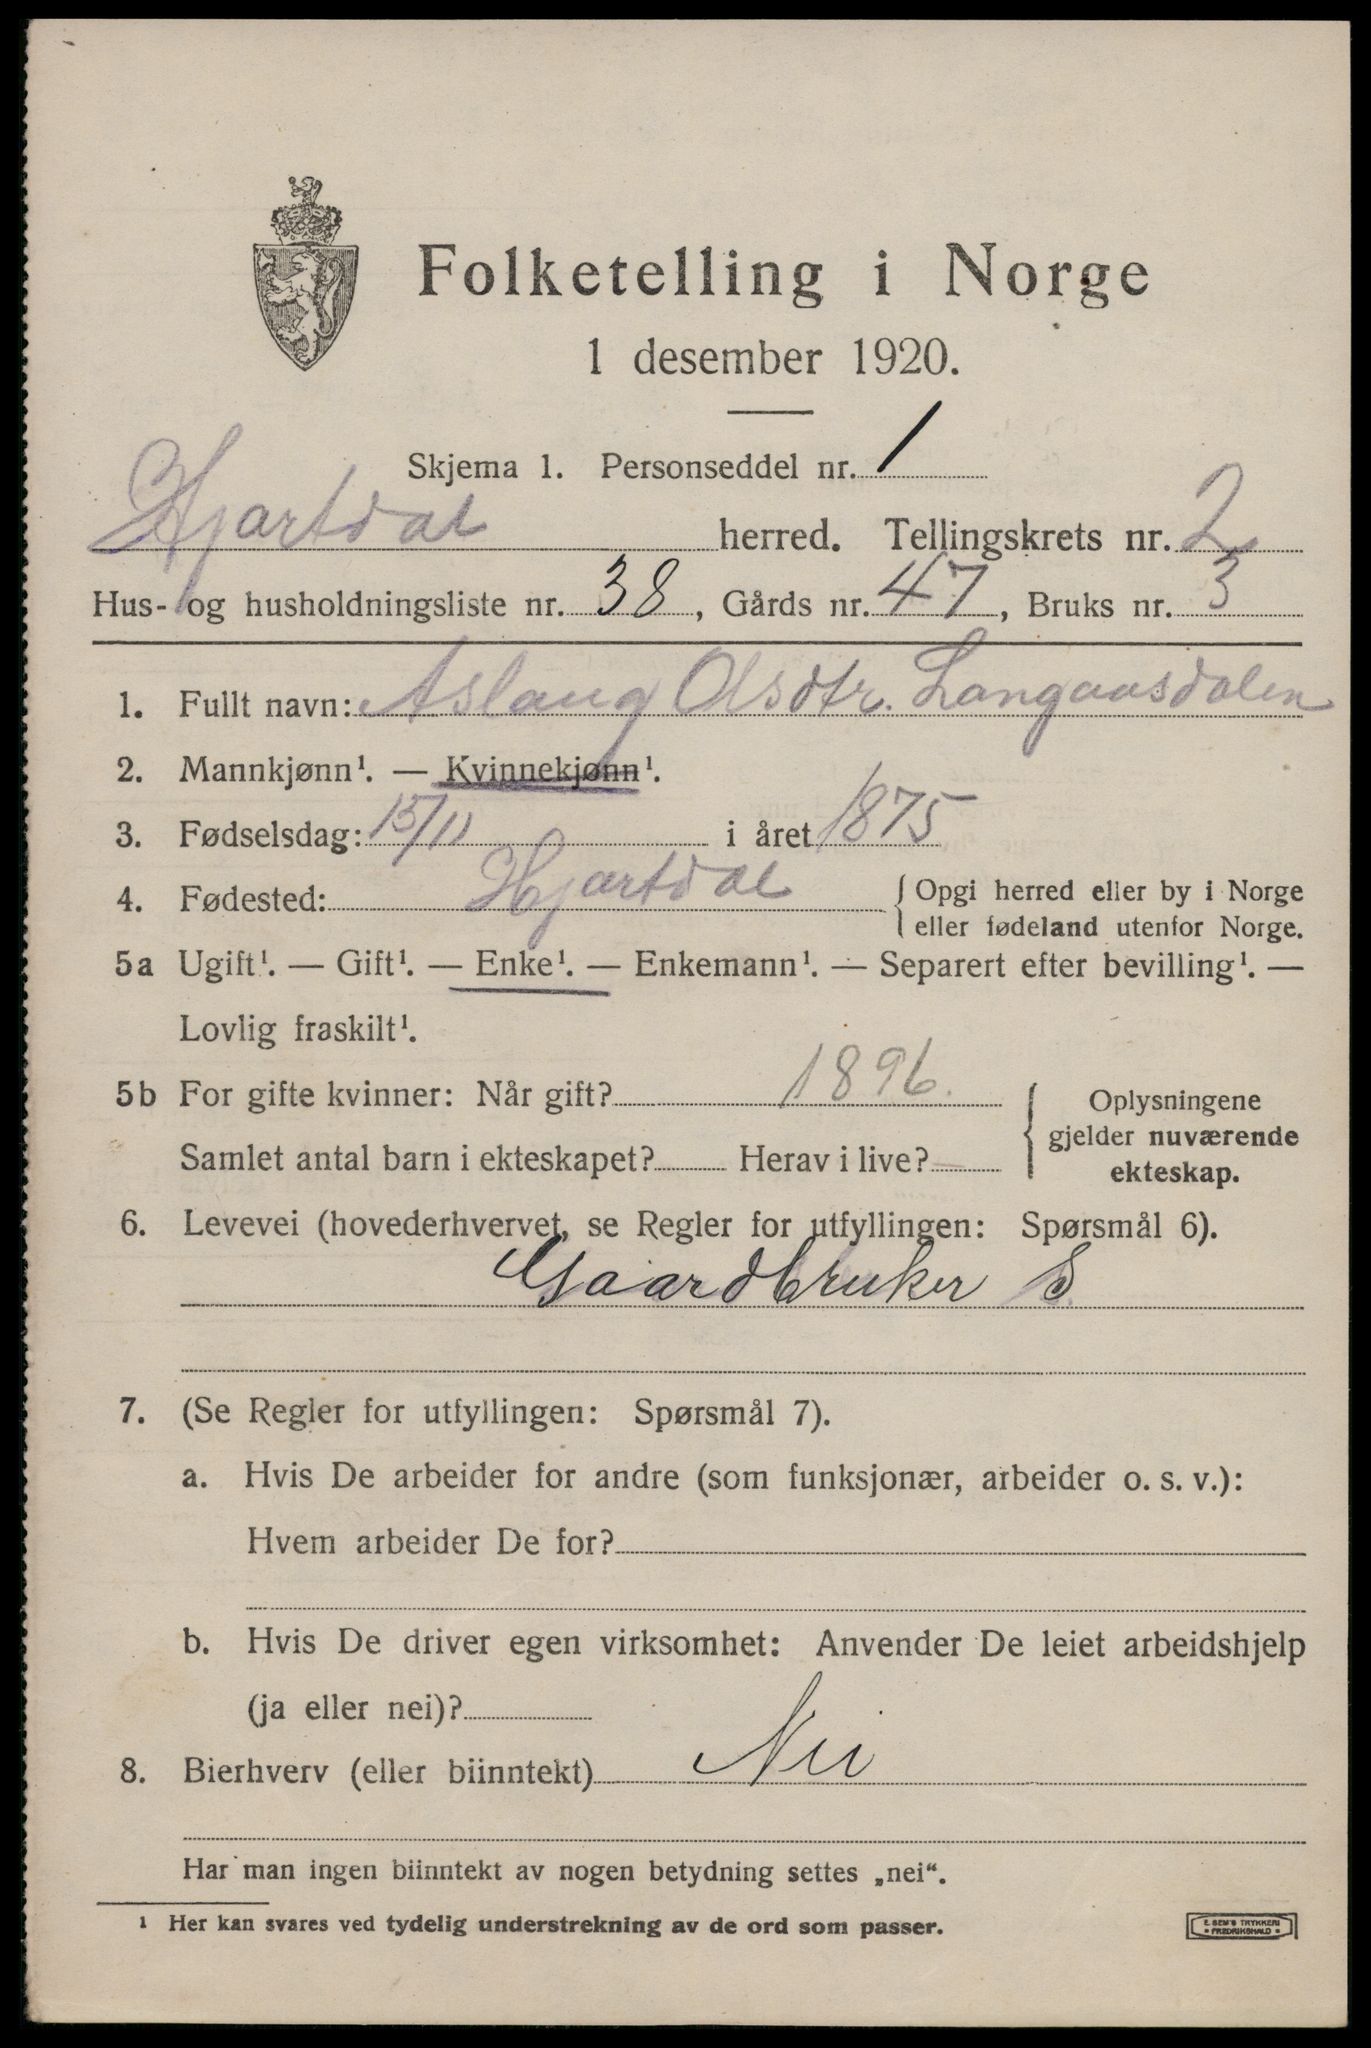 Folketelling i Norge
1 desember 1920.
Skjema 1. Personseddel nr. 1
Hjartdal herred. Tellingskrets nr. 2
Hus- og husholdningsliste nr. 38, Gårds nr. 47, Bruks nr. 3
1. Fullt navn: Aslaug Olsdtr. Langaasdalen
2. Mannkjønn¹. — Kvinnekjønn¹.
3. Fødselsdag: 15/11 i året 1875
4. Fødested: Hjartdal { Opgi herred eller by i Norge
eller fødeland utenfor Norge.
5a Ugift¹. — Gift¹. — Enke¹. — Enkemann¹. — Separert efter bevilling¹. —
Lovlig fraskilt¹.
5b For gifte kvinner: Når gift? 1896.
Samlet antal barn i ekteskapet? Herav i live? —
{ Oplysningene
gjelder nuværende
ekteskap.
6. Levevei (hovederhvervet, se Regler for utfyllingen: Spørsmål 6).
Gaardbruker S
7. (Se Regler for utfyllingen: Spørsmål 7).
a. Hvis De arbeider for andre (som funksjonær, arbeider o. s. v.):
Hvem arbeider De for?
b. Hvis De driver egen virksomhet: Anvender De leiet arbeidshjelp
(ja eller nei)?
8. Bierhverv (eller biinntekt) Nei
Har man ingen biinntekt av nogen betydning settes „nei“.
¹ Her kan svares ved tydelig understrekning av de ord som passer.
E. SEM'S TRYKKERI
* FREDRIKSHALD *